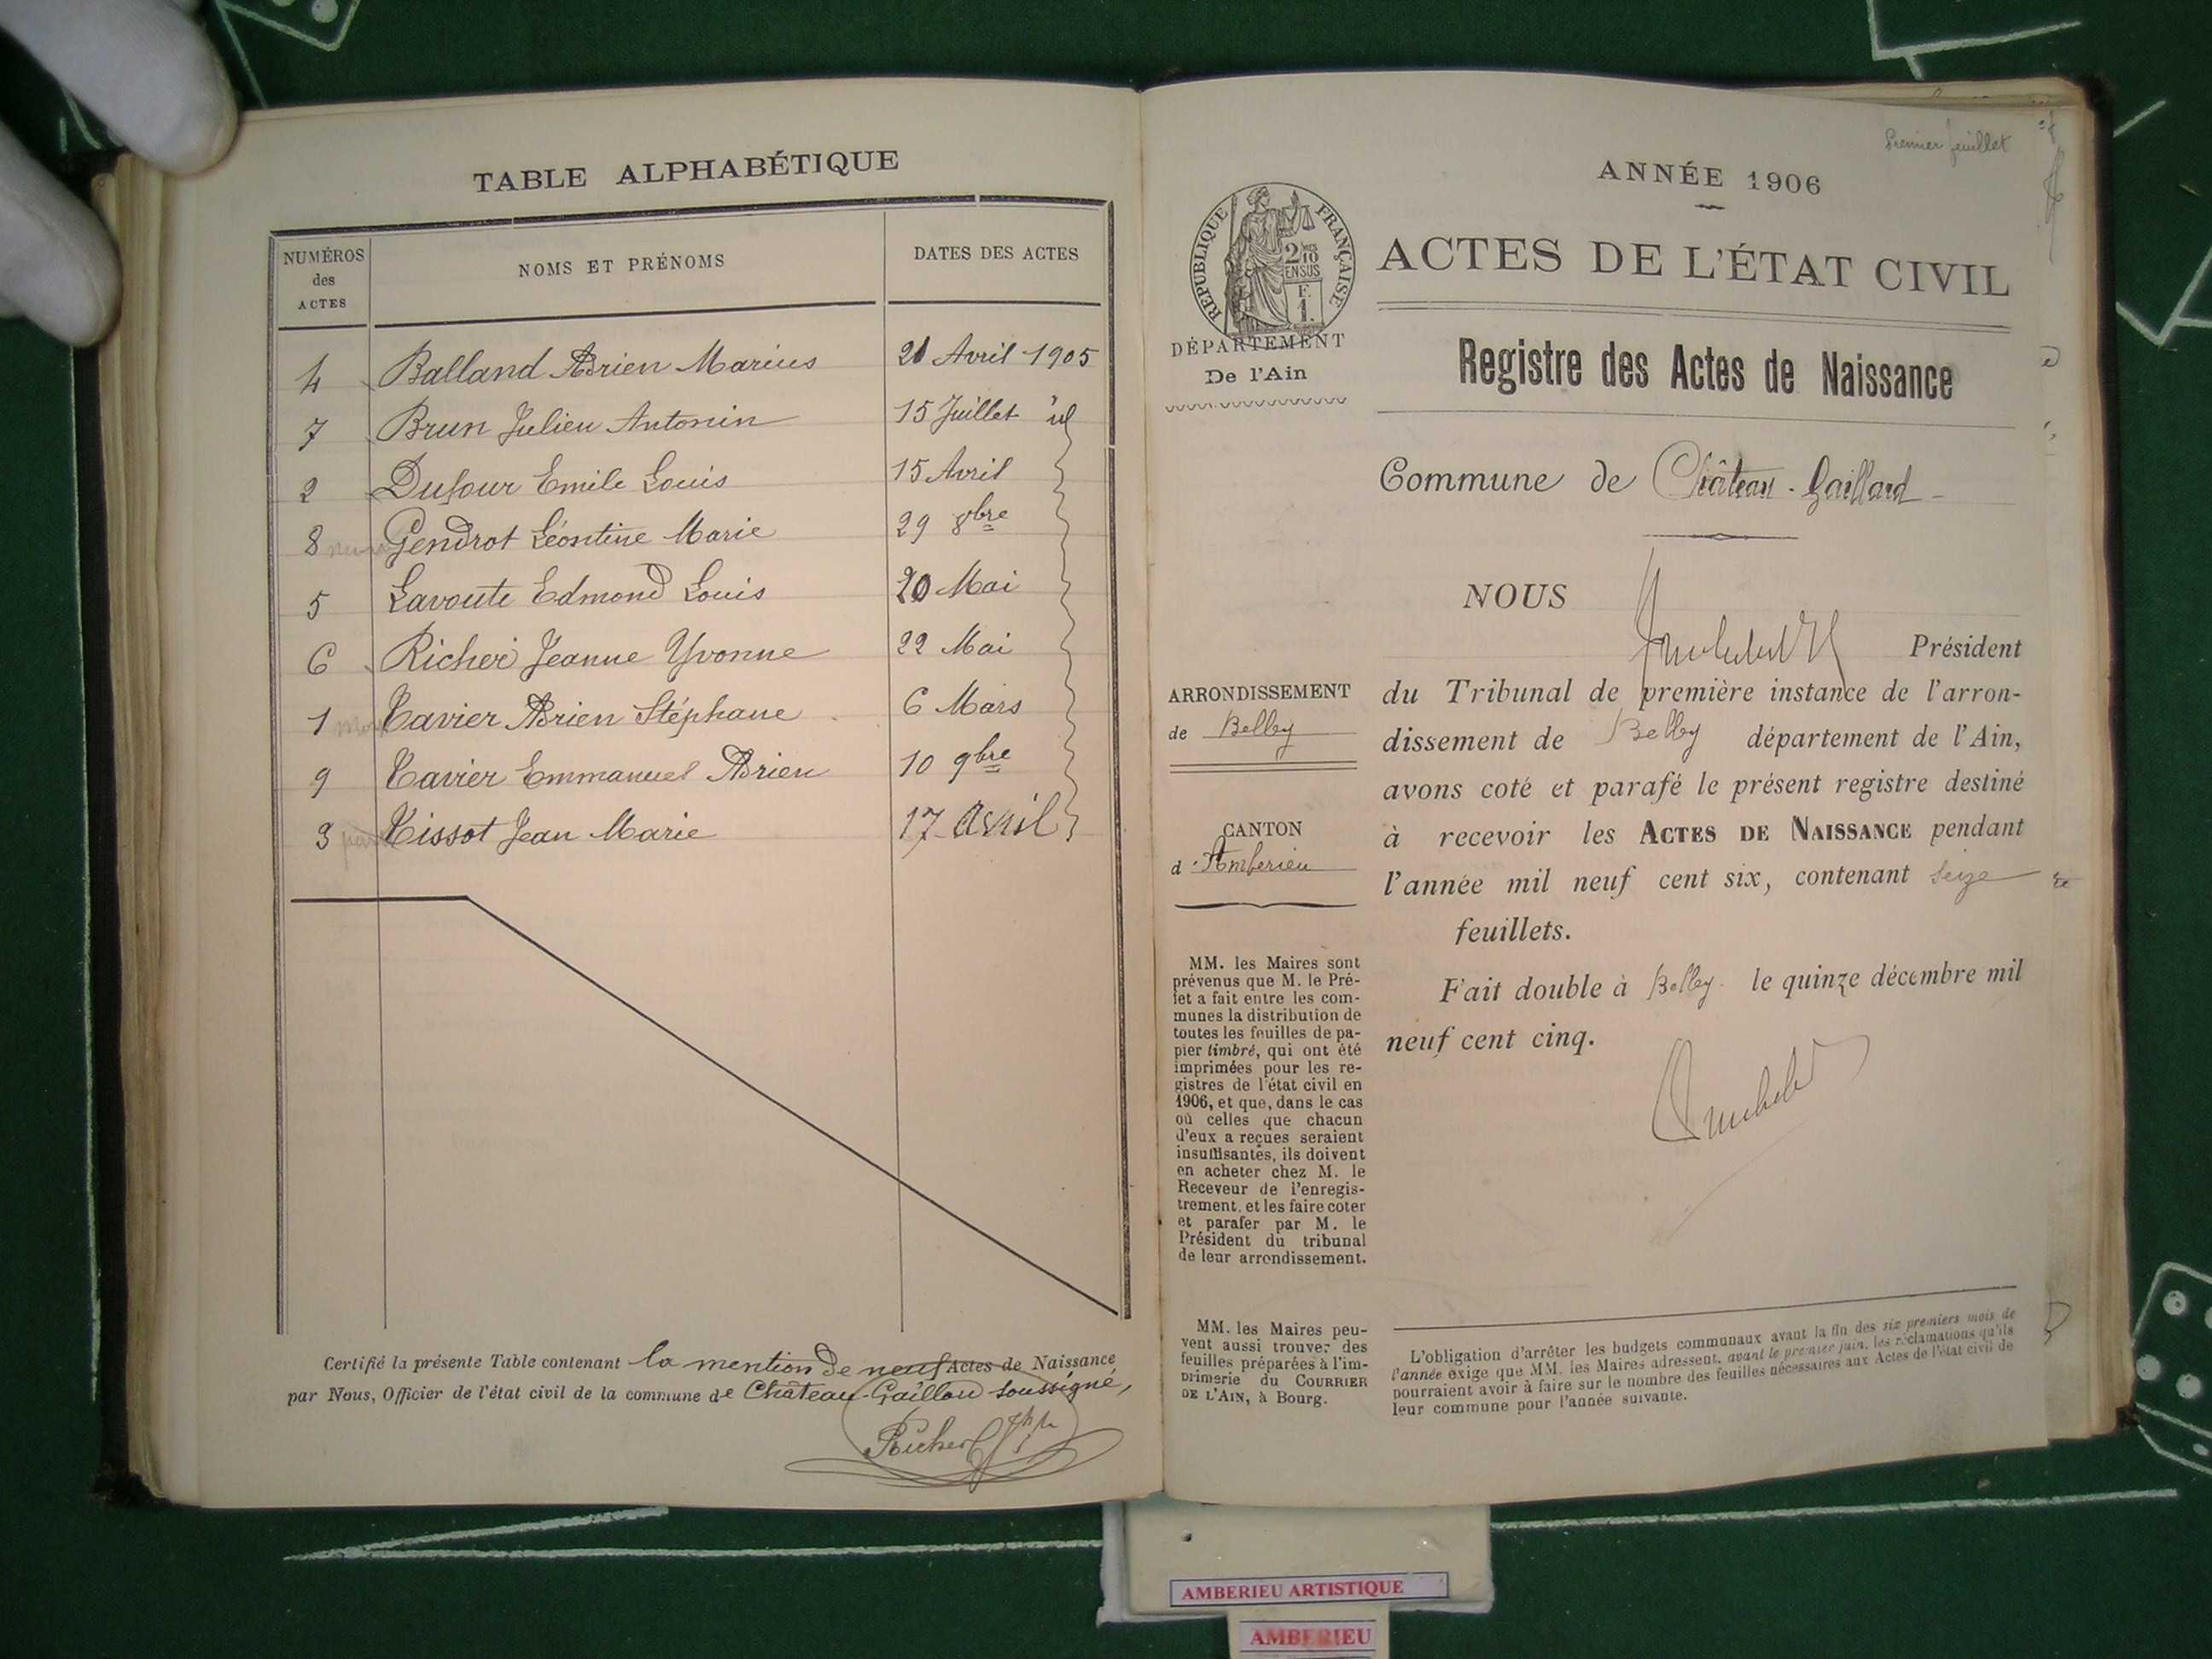 TABLE ALPHABÉTIQUE
NUMÉROS
des
ACTES
NOMS ET PRÉNOMS
DATES DES ACTES
4 Balland Adrien Marius 21 Avril 1905
7 Brun Julien Antonin 15 Juillet id
2 Dufour Emile Louis 15 Avril
8 Gendrot Léontine Marie 29 8bre
5 Lavoute Edmond Louis 20 Mai
6 Richer Jeanne Yvonne 22 Mai
1 Tavier Adrien Stéphane 6 Mars
9 Tavier Emmanuel Adrien 10 9bre
3 Tissot Jean Marie 17 Avril
Certifié la présente Table contenant la mention de neuf Actes de Naissance
par Nous, Officier de l'état civil de la commune de Château-Gaillard soussigné,
Richer
Premier feuillet
ANNÉE 1906
RÉPUBLIQUE FRANÇAISE
2/10
EN SUS
F.
1.
DÉPARTEMENT
De l'Ain
ACTES DE L'ÉTAT CIVIL
Registre des Actes de Naissance
Commune de Château-Gaillard
NOUS
Président
ARRONDISSEMENT
de Belley
CANTON
d'Amberieu
du Tribunal de première instance de l'arron-
dissement de Belley département de l'Ain,
avons coté et parafé le présent registre destiné
à recevoir les ACTES DE NAISSANCE pendant
l'année mil neuf cent six, contenant seize
feuillets.
Fait double à Belley le quinze décembre mil
neuf cent cinq.
MM. les Maires sont
prévenus que M. le Pré-
fet a fait entre les com-
munes la distribution de
toutes les feuilles de pa-
pier timbré, qui ont été
imprimées pour les re-
gistres de l'état civil en
1906, et que, dans le cas
où celles que chacun
d'eux a reçues seraient
insuffisantes, ils doivent
en acheter chez M. le
Receveur de l'enregis-
trement, et les faire coter
et parafer par M. le
Président du tribunal
de leur arrondissement.
MM. les Maires peu-
vent aussi trouver des
feuilles préparées à l'im-
primerie du COURRIER
DE L'AIN, à Bourg.
L'obligation d'arrêter les budgets communaux avant la fin des six premiers mois de
l'année exige que MM. les Maires adressent, avant le premier juin, les réclamations qu'ils
pourraient avoir à faire sur le nombre des feuilles nécessaires aux Actes de l'état civil de
leur commune pour l'année suivante.
AMBERIEU ARTISTIQUE
AMBERIEU